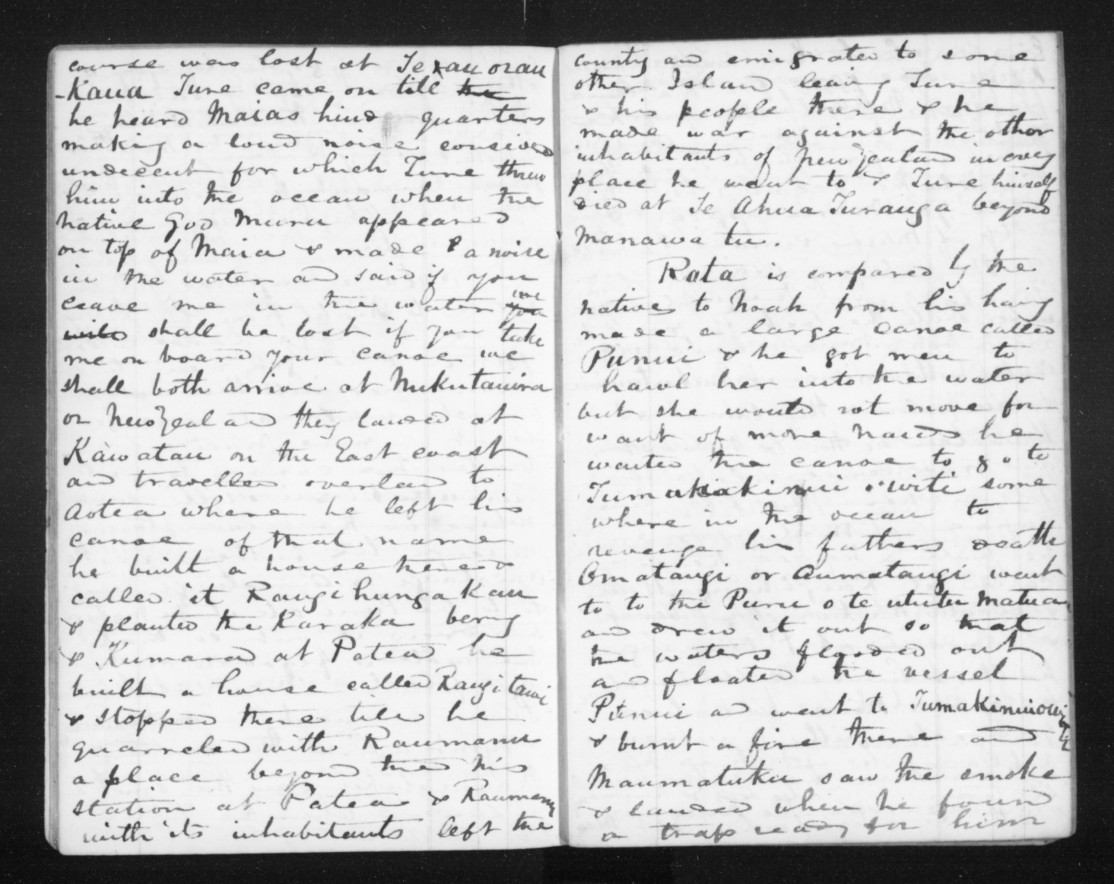 course was lost at Te
-Kaua Ture came on till the
he heard Maias hind quarters
making a loud noise
undecent for which Ture threw
him into the ocean when the
native God Muru appeared
on top of Maia & made a noise
in the water and said if you
leave me in the water you we
shall be lost if you take
me on board your canoe we
shall both arrive at Nukutauira
or New Zealand they landed at
Kawatau on the East coast
and travelled overland to
Aotea where he left his
canoe of that name
he built a house here &
called it Rangihungakau
& planted the Karaka bery
& Kumara at Patea he
built a house called Rangitawi
& stopped there till he
quarreled with Raumanu
a place beyond his
station at Patea & Raumanu
with its inhabitants left the
county and emigrated to some
other Island leaving Ture
& his people there & he
made war against the other
inhabitants of New Zealand in every
place he went to & Ture himself
died at Te Ahua Turanga beyond
Manawatu.
Rata is compared by the
natives to Noah from his having
made a large canoe called
Punui & he got men to
hawl her into the water
but she would not move for
want of more hands he
wanted the canoe to go to
some
where in the ocean to
revenge his fathers death
Omatangi or Aumatangi went
to to the Puru o te matua
and drew it out so that
the waters flooded out
and floated the vessel
Punui and went to
& burnt a fire there and
Maumatuku saw the smoke
& landed when he found
a trap ready for him